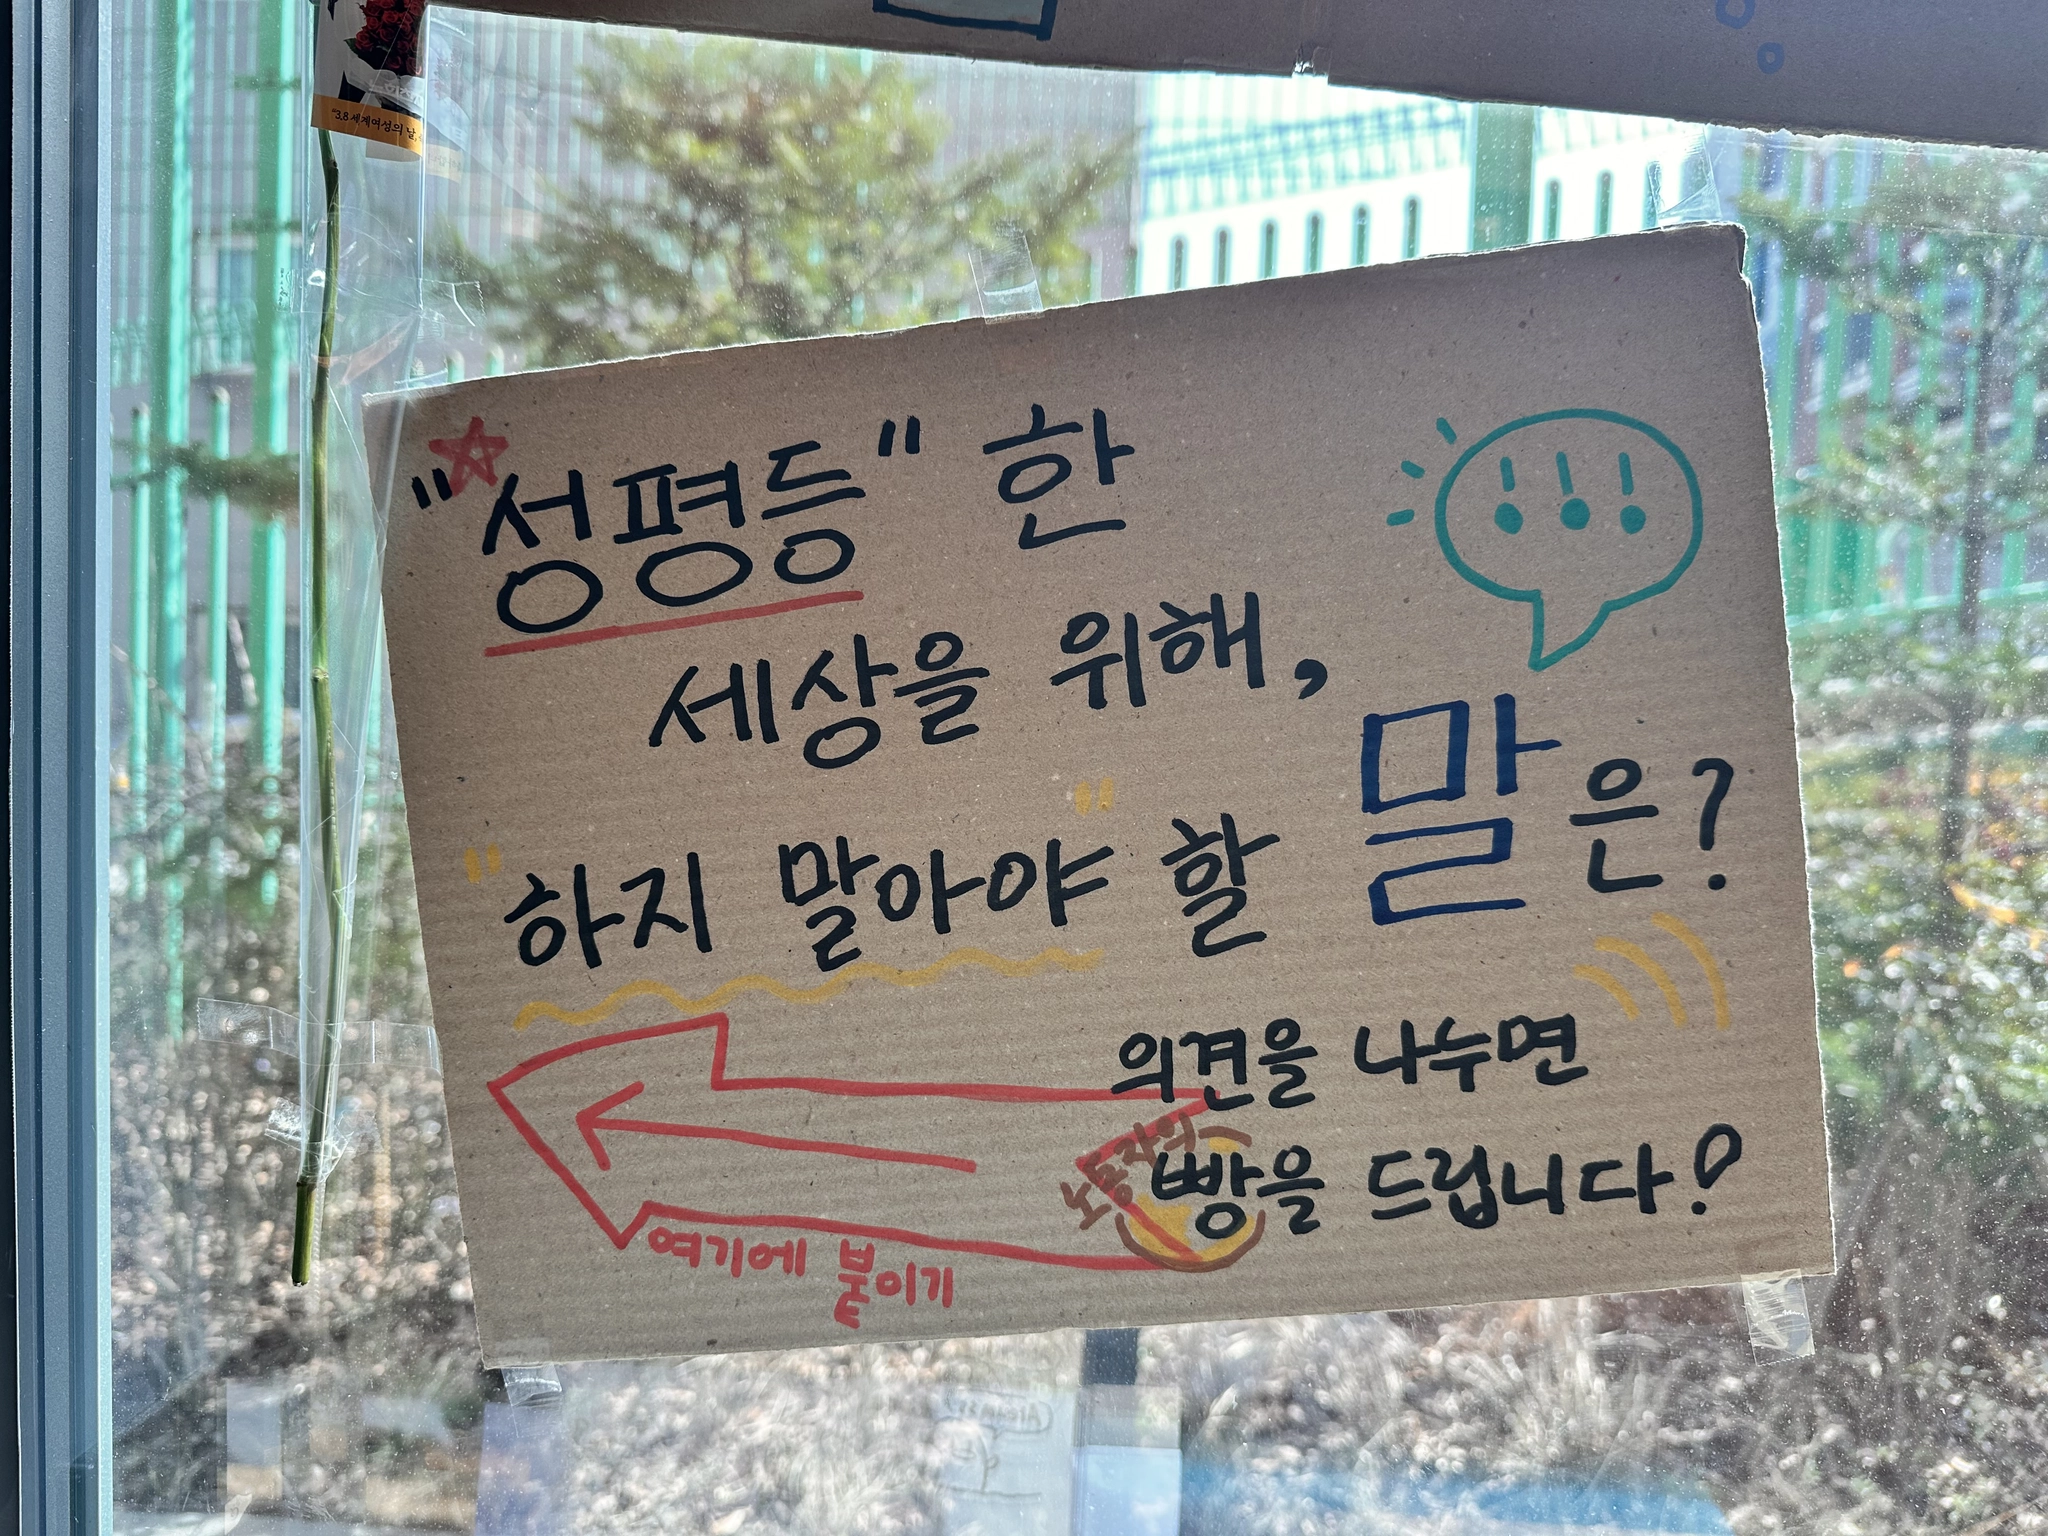 "3.8 세계여성의 날,
"성평등" 한
세상을 위해,
"하지 말아야" 할 말은?
의견을 나누면
노동자의
빵을 드립니다!
여기에 붙이기